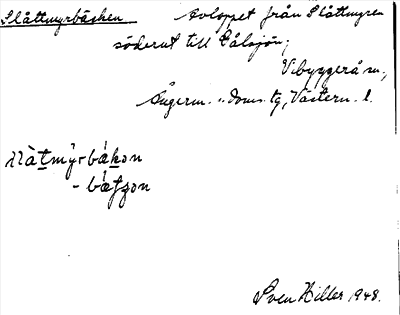 Slåttmyrbäcken Avloppet från Slåttmyren
söderut till Gålsjön;
Vibyggerå sn,
Ångerm. s. doms. tg, Västern. l.
-båtʒon
Sven Hiller 1948.